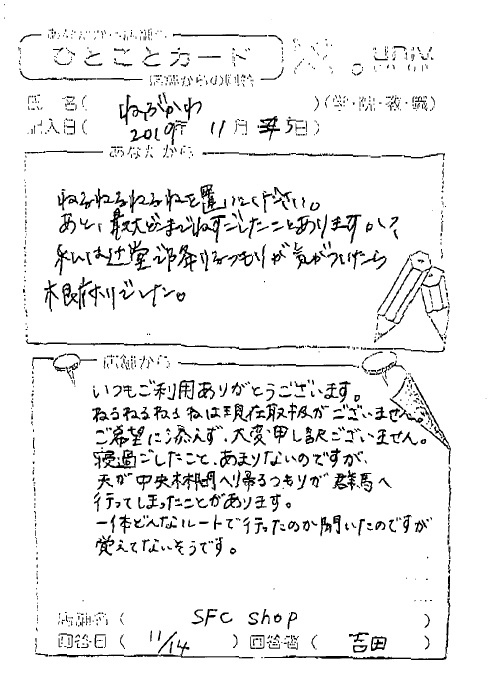 ひとことカード
店舗からの回答
univ
氏 名( ねぶかわ )(学・院・教・職)
記入日( 2019年 11月 5日)
あなたから
ねるねるねるねを置いてください。
あと、最大どこまでねすごしたことありますか?
私は辻堂で降りるつもりが気がついたら
根府川でした。
店舗から
いつもご利用ありがとうございます。
ねるねるねるねは現在取扱がございません。
ご希望にう添えず、大変申し訳ございません。
寝過ごしたこと、あまりないのですが、
夫が中央林間へ帰るつもりが群馬へ
行ってしまったことがあります。
一体どんなルートで行ったのか聞いたのですが
覚えてないそうです。
店舗名( SFC shop )
回答日( 11/14 ) 回答者( 吉田 )